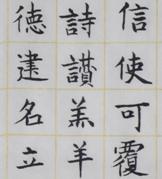 信使可覆
詩讃羔羊
徳建名立